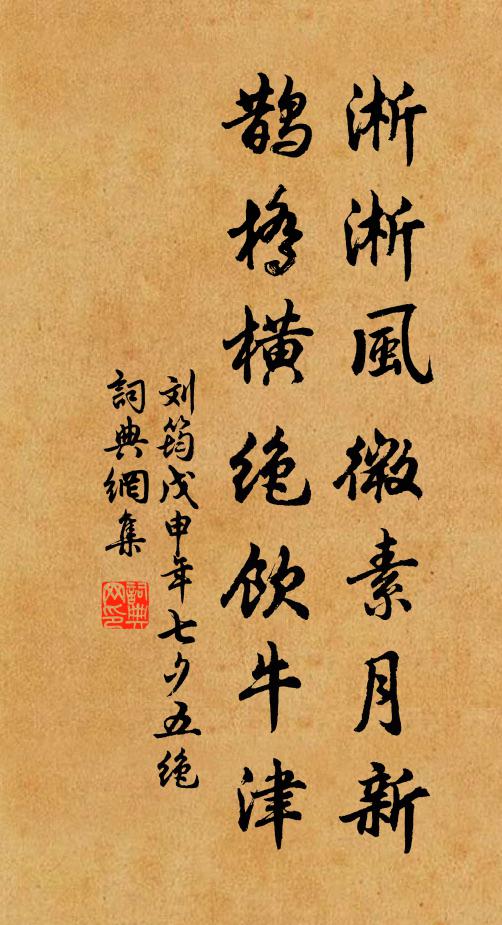 淅淅風微素月新
鹊橋橫绝飲牛津
刘筠戊申年七夕五绝
詞典網集
詞典网印